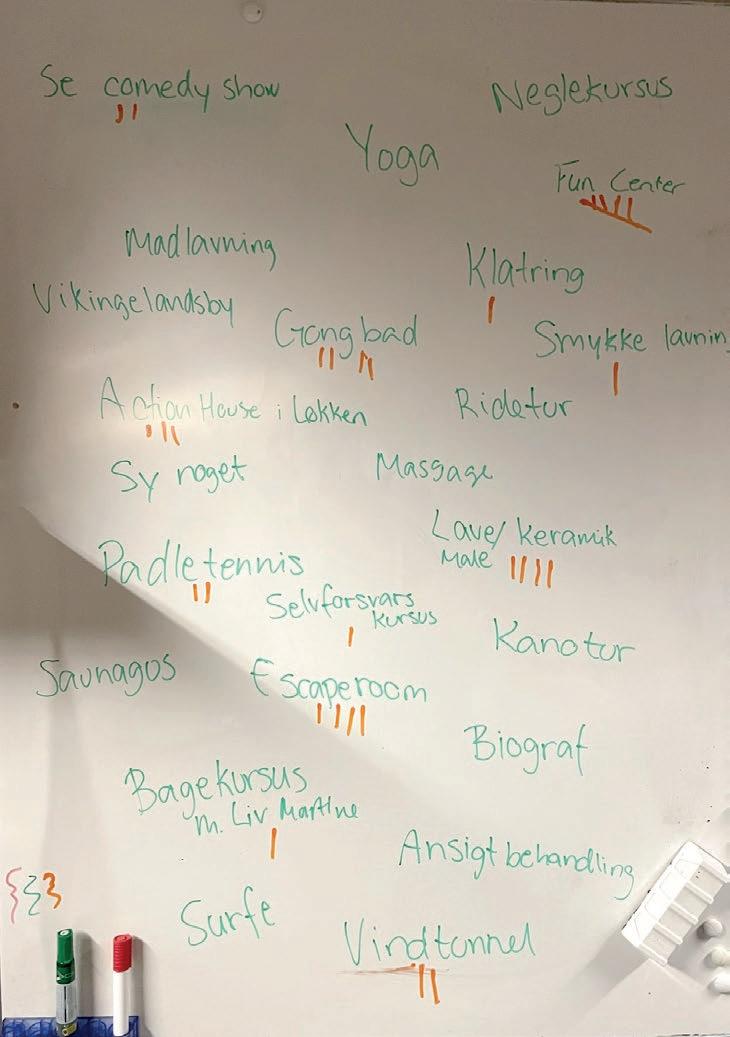 Se comedy show
Neglekursus
Yoga
Fun Center
Madlavning
Klatring
Vikingelandsby
Gong bad
Smykke lavnin
Action House i Løkken
Ridetur
Sy noget
Massage
Lave/ keramik
Male
Padletennis
Selvforsvars
kursus
Kanotur
Saunagus
Escaperoom
Biograf
Bagekursus
m. Liv Martine
Ansigtbehandling
Surfe
Vindtunnel